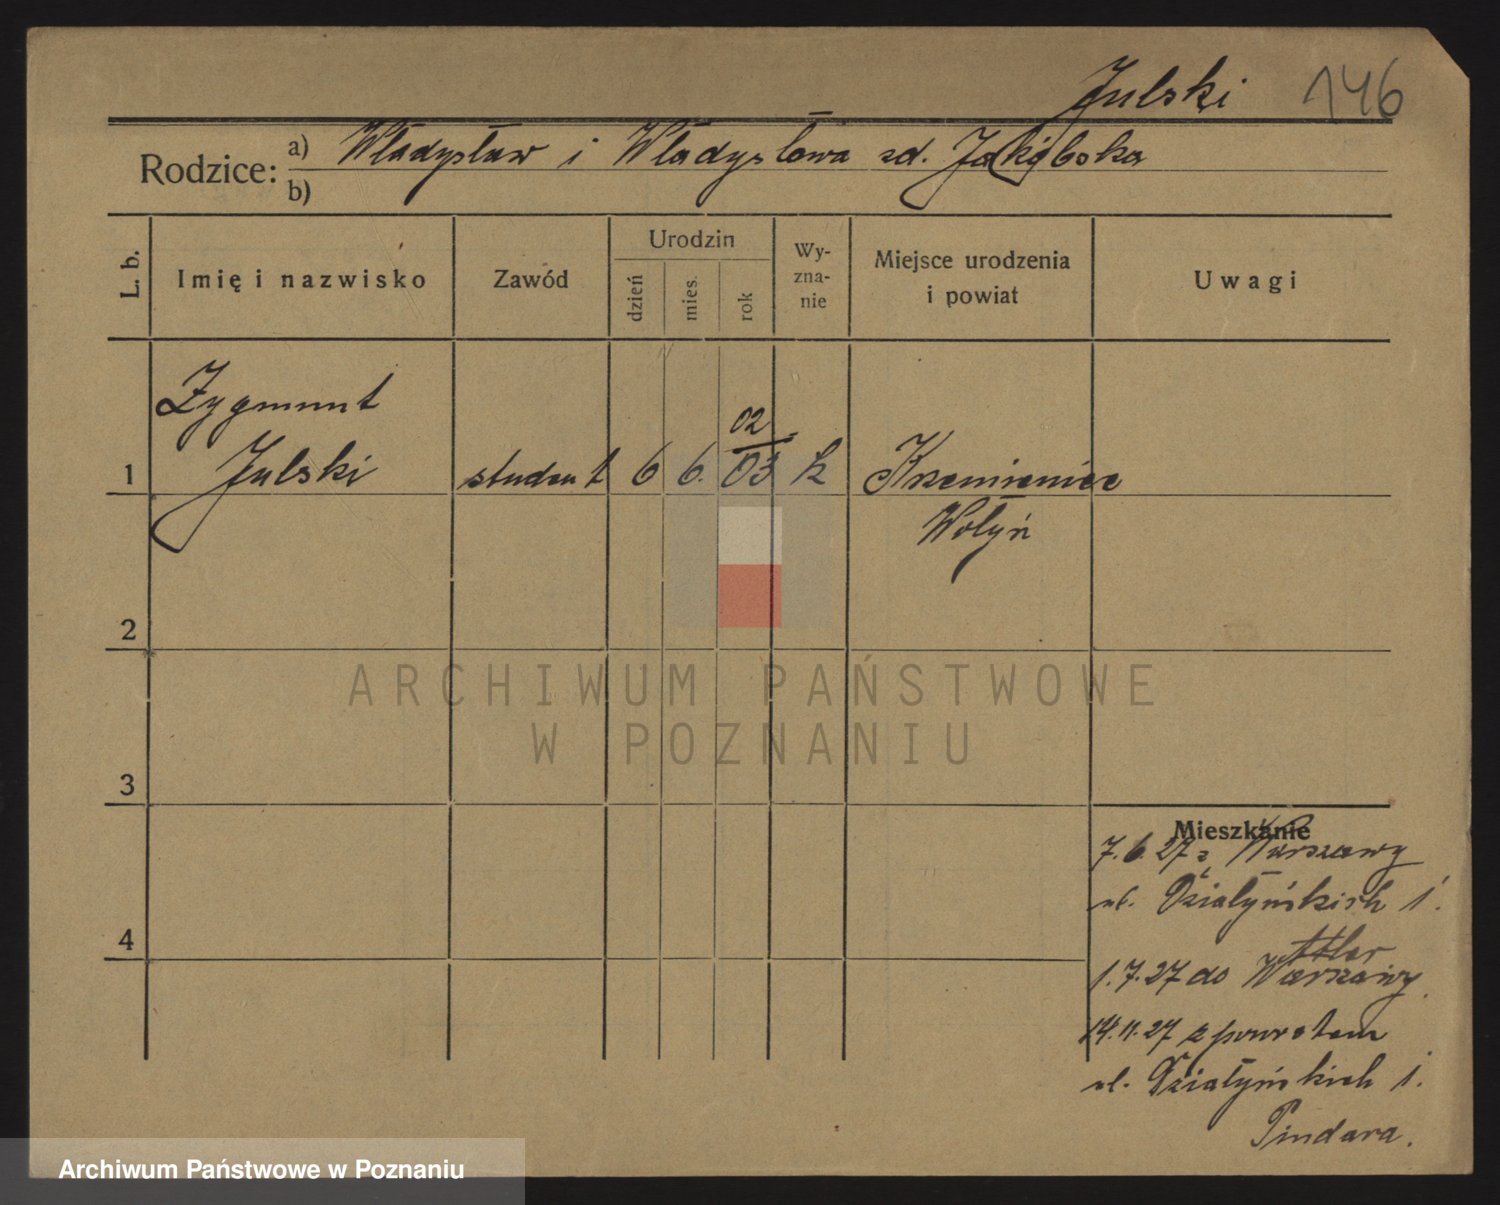 Julski 146
Rodzice: a) Władysław i Władysłowa zd. Jakóbska
b)
L. b. Imię i nazwisko Zawód Urodzin dzień mies. rok Wy-zna-nie Miejsce urodzenia i powiat Uwagi
Zygmunt
02
1 Julski student 6 6. 03 k Krzemieniec
Wołyń
2
ARCHIWUM PAŃSTWOWE
W POZNANIU
3
Mieszkanie
7.6.27 z Warszawy
ul. Działyńskich 1.
1.7.27 do Warszawy
14.11.27 z powrotem
ul. Działyńskich 1.
Pindara.
4
Archiwum Państwowe w Poznaniu